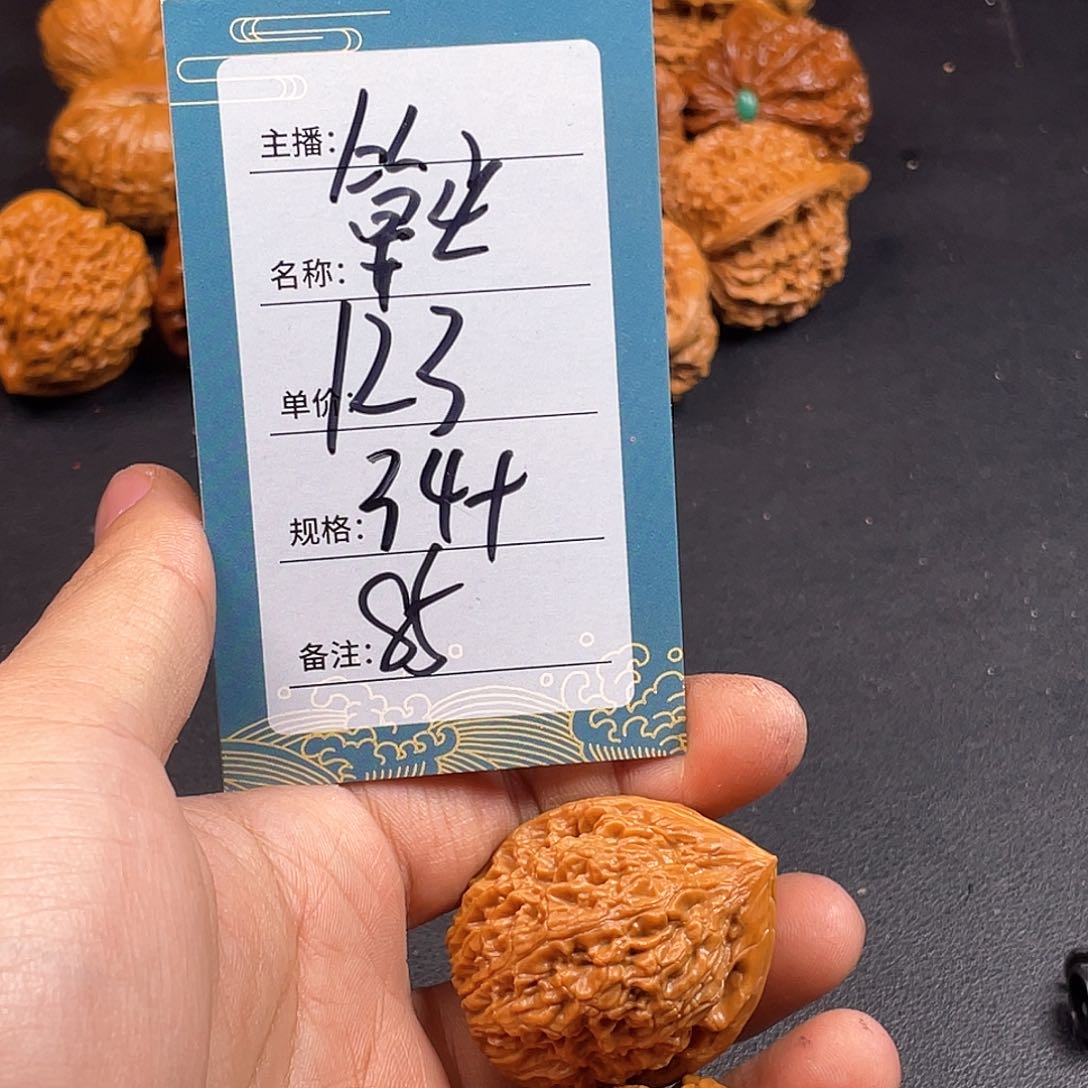 主播：
名称：
单价：123
规格：34+
备注：85